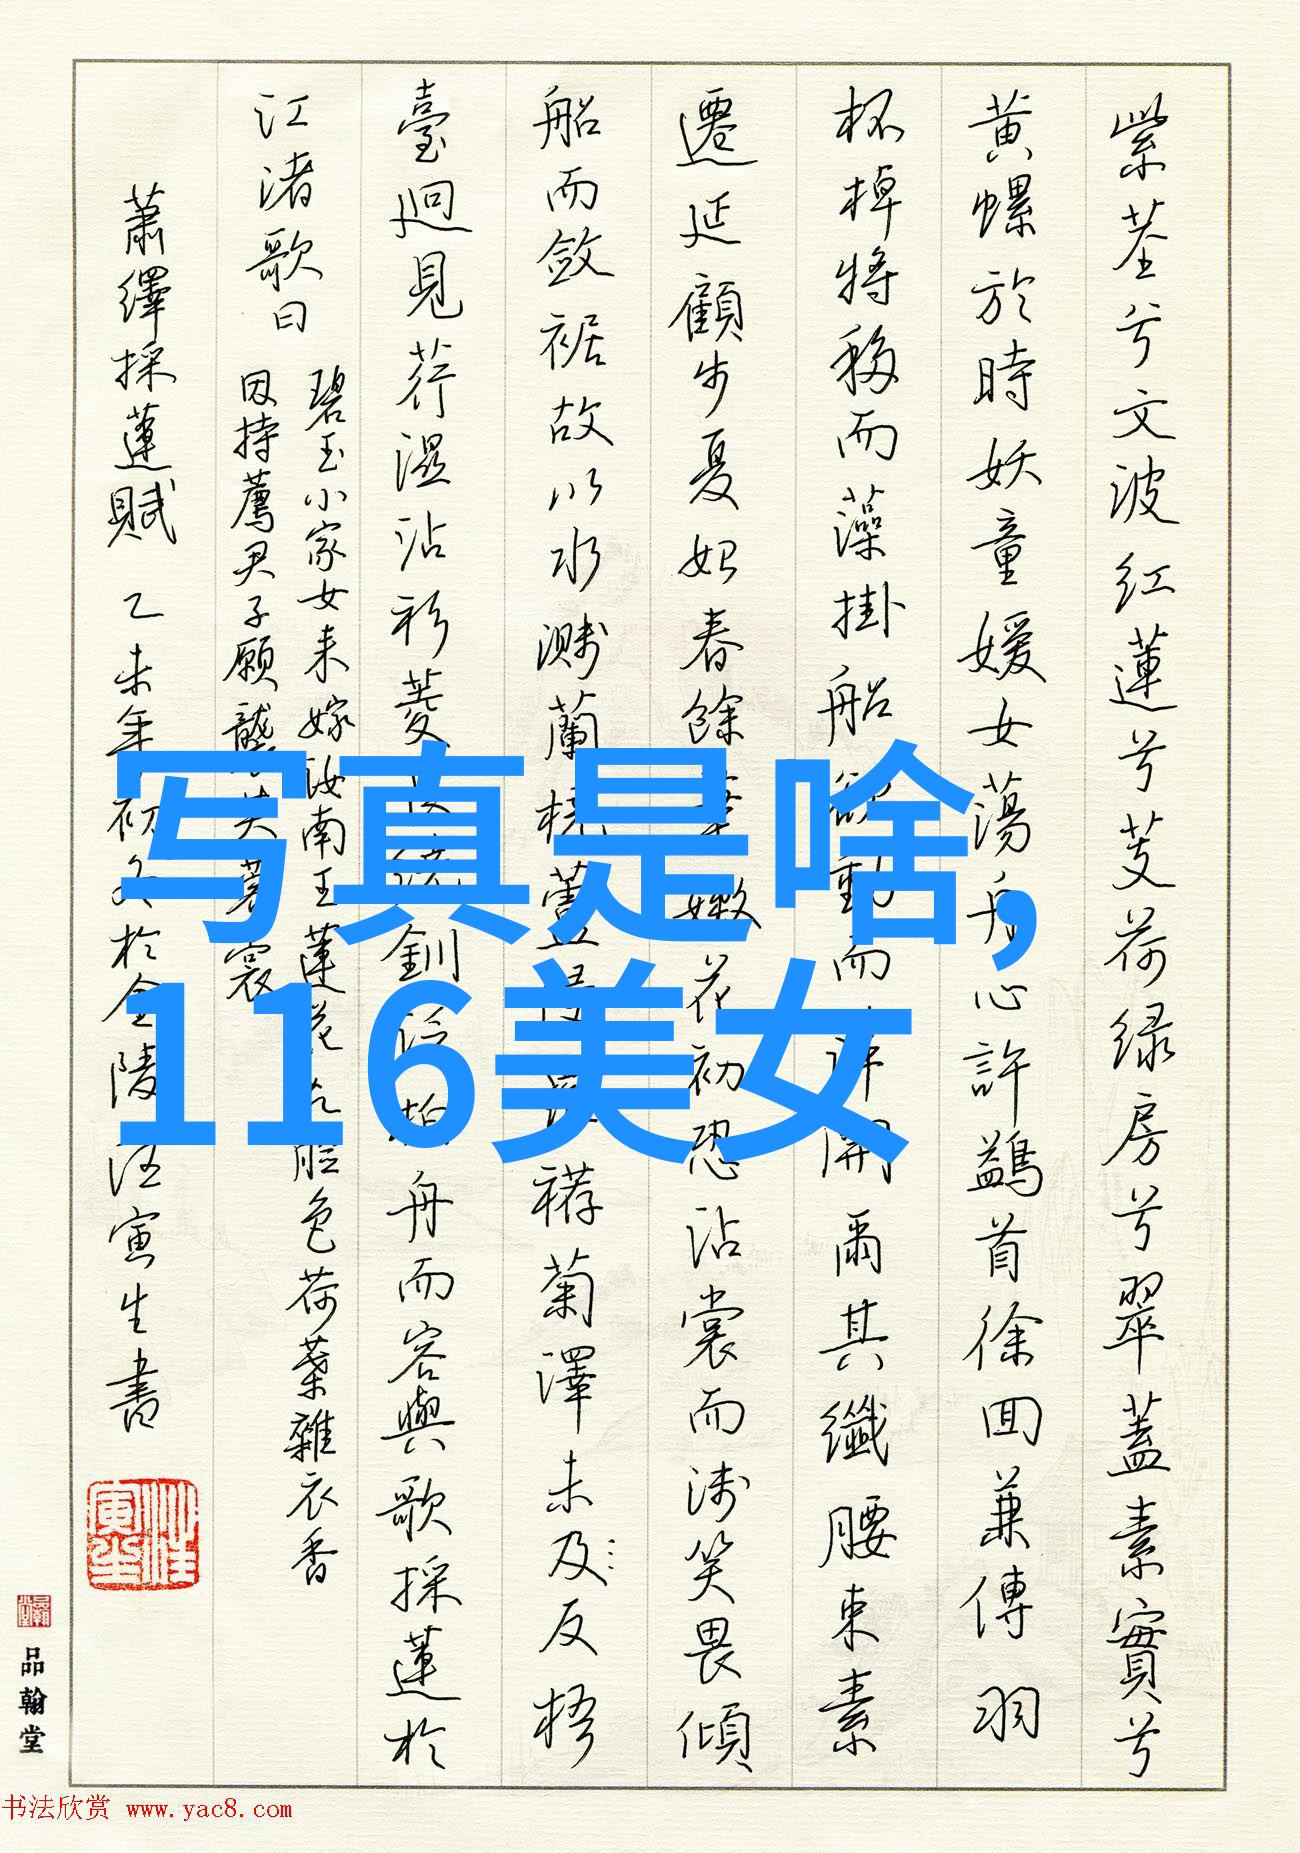 紫茎兮文波红蓮兮芰荷绿房兮翠蓋素實兮
黄螺於時妖童媛女蕩舟心許鷁首徐回兼傳羽
杯棹将移而藻掛船欲動而萍開爾其纖腰束素
遷延顧步夏始春餘葉嫩花初恐沾裳而浅笑畏傾
船而斂裾故以水溅蘭橈蘆侵羅袸菊澤未及反梧
臺迥見荇濕沾衫菱長绕釧泛柏舟而容與歌採蓮於
江渚歌曰
碧玉小家女来嫁汝南王蓮花乱臉色荷葉雜衣香
因持薦君子願襲芙蓉裳
蕭繹採蓮賦 乙未年初冬於金陵汪寅生書
汪寅生
品翰堂
写真是啥,
116美女
书法欣赏 www.yac8.com